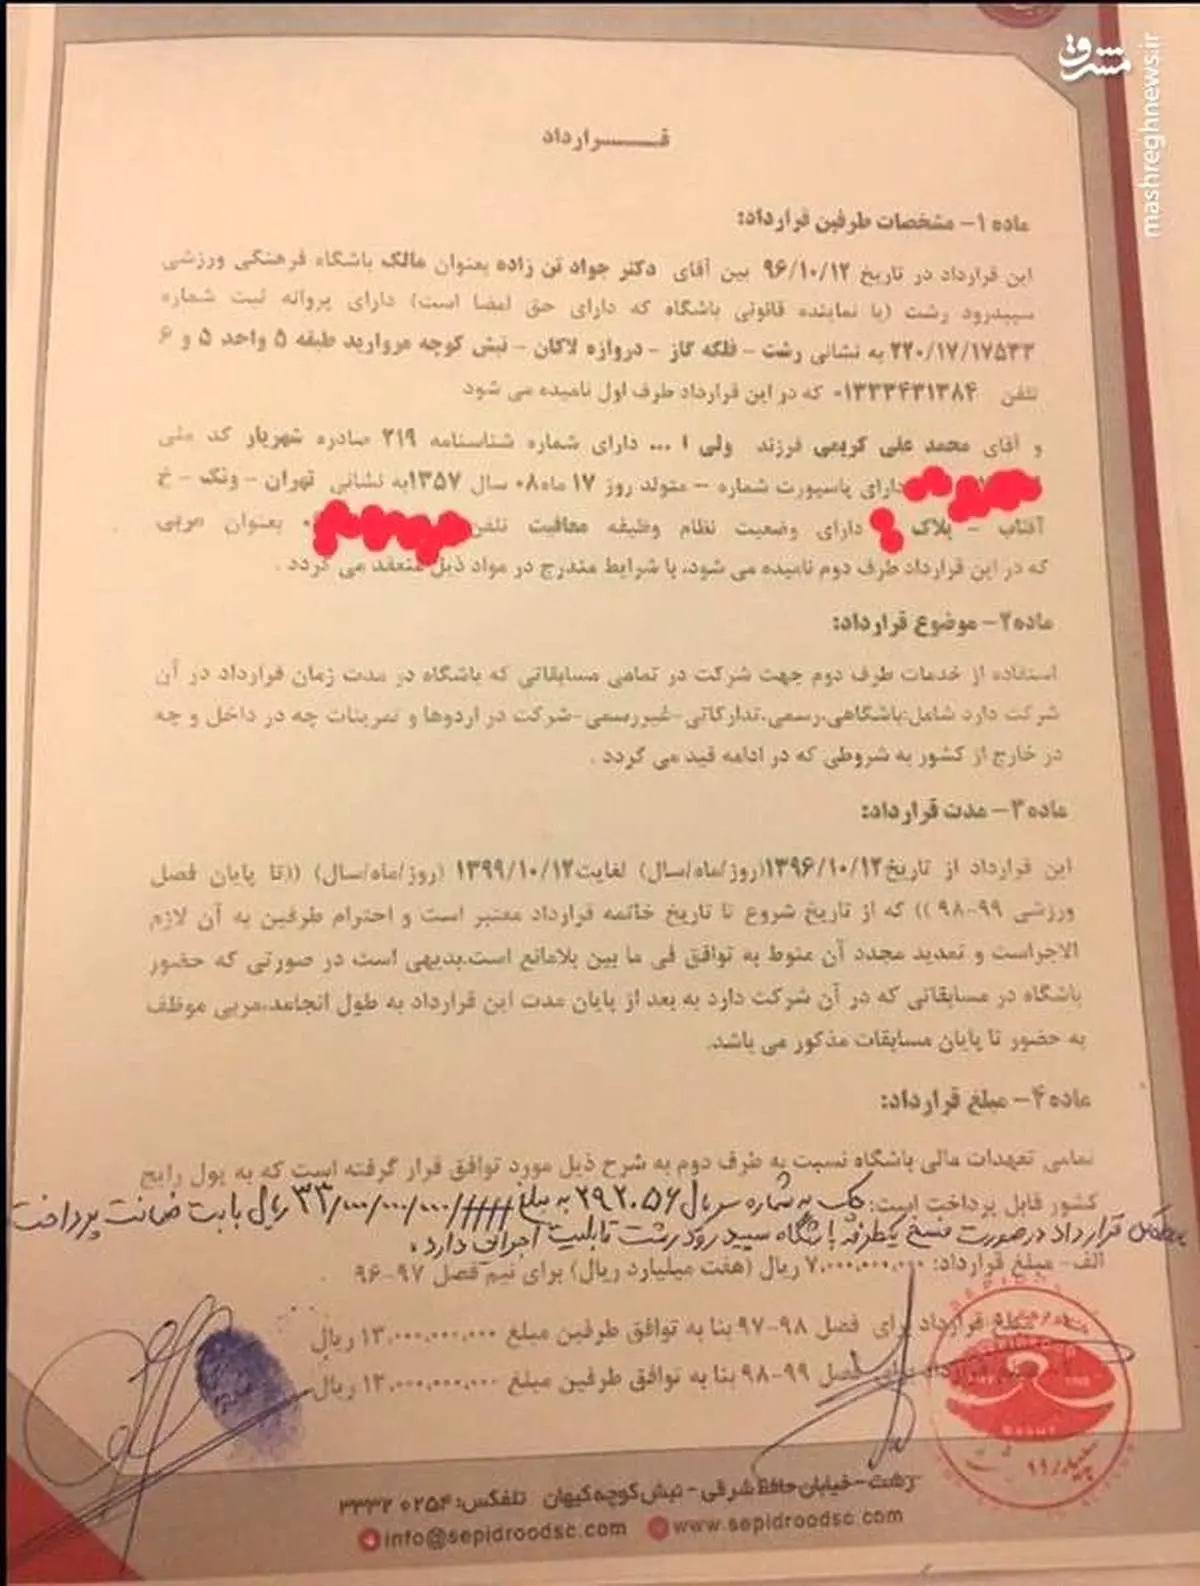 مشرق
mashreghnews.ir
قـــــرارداد
ماده ۱- مشخصات طرفین قرارداد:
این قرارداد در تاریخ ۹۶/۱۰/۱۲ بین آقای دکتر جواد تن زاده بعنوان مالک باشگاه فرهنگی ورزشی
سپیدرود رشت (یا نماینده قانونی باشگاه که دارای حق امضا است) دارای پروانه ثبت شماره
۲۲۰/۱۷/۱۷۵۳۳ به نشانی رشت - فلکه گاز - دروازه لاکان - نبش کوچه مروارید طبقه ۵ واحد ۵ و ۶
تلفن ۰۱۳۳۳۴۳۱۳۸۴ که در این قرارداد طرف اول نامیده می شود
و آقای محمد علی کریمی فرزند ولی ا ... دارای شماره شناسنامه ۲۱۹ صادره شهریار کد ملی
دارای پاسپورت شماره - متولد روز ۱۷ ماه ۰۸ سال ۱۳۵۷ به نشانی تهران - ونک - خ
آفتاب - پلاک دارای وضعیت نظام وظیفه معافیت تلفن ۰ بعنوان مربی
که در این قرارداد طرف دوم نامیده می شود، با شرایط مندرج در مواد ذیل منعقد می گردد .
ماده ۲- موضوع قرارداد:
استفاده از خدمات طرف دوم جهت شرکت در تمامی مسابقاتی که باشگاه در مدت زمان قرارداد در آن
شرکت دارد شامل:باشگاهی،رسمی،تدارکاتی-غیررسمی-شرکت در اردوها و تمرینات چه در داخل و چه
در خارج از کشور به شروطی که در ادامه قید می گردد .
ماده ۳- مدت قرارداد:
این قرارداد از تاریخ ۱۳۹۶/۱۰/۱۲(روز/ماه/سال) لغایت ۱۳۹۹/۱۰/۱۲ (روز/ماه/سال) ((تا پایان فصل
ورزشی ۹۹-۹۸ )) که از تاریخ شروع تا تاریخ خاتمه قرارداد معتبر است و احترام طرفین به آن لازم
الاجراست و تمدید مجدد آن منوط به توافق فی ما بین بلامانع است.بدیهی است در صورتی که حضور
باشگاه در مسابقاتی که در آن شرکت دارد به بعد از پایان مدت این قرارداد به طول انجامد،مربی موظف
به حضور تا پایان مسابقات مذکور می باشد.
ماده ۴- مبلغ قرارداد:
تمامی تعهدات مالی باشگاه نسبت به طرف دوم به شرح ذیل مورد توافق قرار گرفته است که به پول رایج
کشور قابل پرداخت است: چک به شماره سریال ۲۹۲۰۵۶ به مبلغ ####/۳۳/۰۰۰/۰۰۰/۰۰۰ ریال بابت ضمانت پرداخت
قرارداد در صورت فسخ یکطرفه باشگاه سپیدرود رشت قابلیت اجرائی دارد .
الف- مبلغ قرارداد: ۷،۰۰۰،۰۰۰،۰۰۰ ریال (هفت میلیارد ریال) برای نیم فصل ۹۷-۹۶ .
مبلغ قرارداد برای فصل ۹۸-۹۷ بنا به توافق طرفین مبلغ ۱۳،۰۰۰،۰۰۰،۰۰۰ ریال
قرارداد برای فصل ۹۹-۹۸ بنا به توافق طرفین مبلغ ۱۳،۰۰۰،۰۰۰،۰۰۰ ریال
RASHT
رشت- خیابان حافظ شرقی - نبش کوچه کیهان تلفکس: ۳۳۳۲۰۲۵۴
info@sepidroodsc.com www.sepidroodsc.com